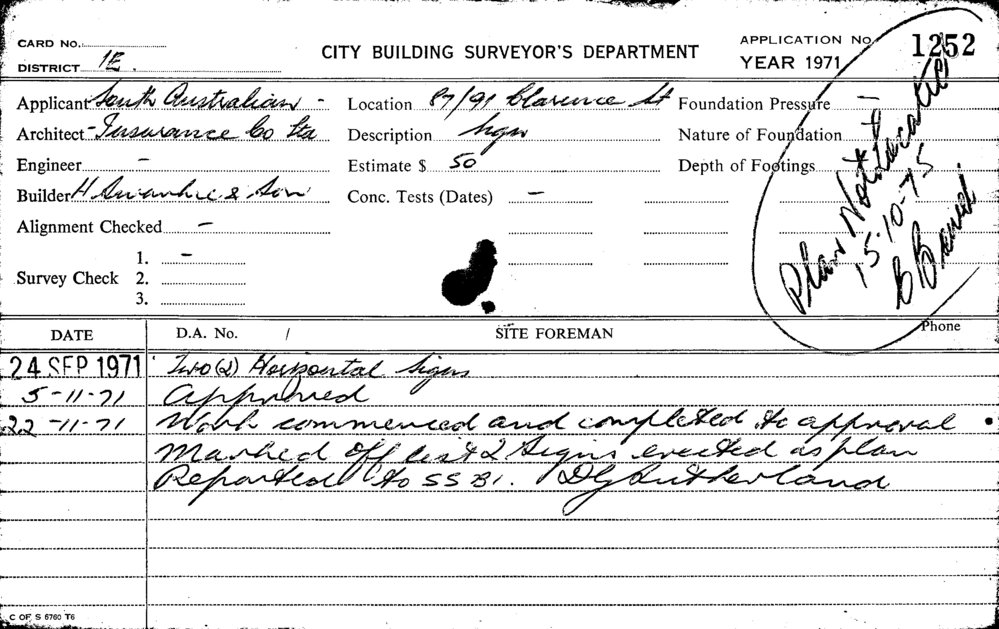 CARD No. CITY BUILDING SURVEYOR'S DEPARTMENT APPLICATION No. 1252
DISTRICT 1E. YEAR 1971
Applicant South Australian - Location 87/91 Clarence St Foundation Pressure -
Architect - Insurance Co Lta Description Sign Nature of Foundation
Engineer - Estimate $ 50 Depth of Footings
Builder H & Son Conc. Tests (Dates) -
Alignment Checked -
Survey Check 1. -
2.
3.
Plan Not Located
15-10-75
B
DATE D.A. No. / SITE FOREMAN Phone
24 SEP 1971 Two (2) Horizontal Signs
5-11-71 Approved
22-11-71 Work commenced and completed to approval
Marked off list 2 Signs erected as plan
Reported to SSBI. DG Sutherland
C OF S 6760 T6